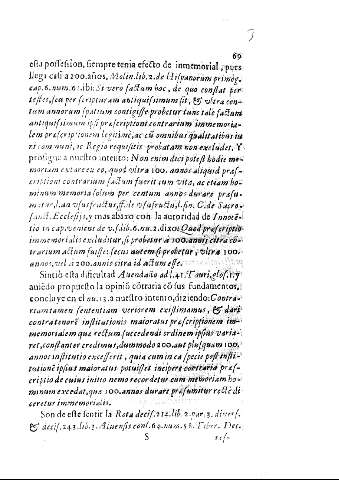 69
esta possession, siempre tenia efecto de inmemorial, pues
llega casi a 200. años, Molin. lib. 2. de Hispanorum primog.
cap. 6. num. 61. ibi: Si vero factum hoc, de quo constat per
testes, seu per scripturam antiquissimum sit, & vltra cen-
tum annorum spatium contigisse probetur tunc tale factum
antiquissimum ipsi præscriptioni contrarium immemoria-
lem præscriptionem legitimè, ac cũ omnibus qualitatibus iu
ri communi, te Regio requisitis probatam non excludet. Y
prosigue a nuestro intento: Non enim dici potest hodie me-
moriam extare eo, quòd vltra 100. annos aliquid præs-
criptioni contrarium factum fuerit cum vita, ac etiam ho-
minum memoria solum per centum annos durare præsu-
matur, l. an vsusfructus, ff. de vsufructu, l. fin. C. de Sacro
sanct. Ecclesijs, y mas abaxo con la autoridad de Innocẽ-
tio in cap. veniens de v. s. lib. 6. nu. 2. dixo: Quod præscriptio
immemorialis excluditur, si probetur à 100. annis citra cõ-
trarium actum fuisse: secus autem si probetur, vltra 100.
annos, vel à 200. annis citra id actum esse.
Sintio esta dificultad Auendaño ad l. 41. Tauri, glos. 1. y
auiẽdo propuesto la opiniõ cõtraria cõ sus fundamentos,
concluye en el nu. 13. a nuestro intento, diziendo: Contra-
riam tamen sententiam veriorem existimamus, & dari
contra tenorẽ institutionis maioratus præscriptionem im-
memorialem qua rectum succedendi ordinem ipsius varia-
ret, constanter credimus, dummodo 200. aut plusquam 100.
annos institutio excesserit, quia cum in ea specie post insti-
tutionẽ ipsius maioratus potuisset incipere contraria præs-
criptio de cuius initio nemo recordetur cum memoriam ho-
minum excedat, quæ 100. annos durare præsumitur rectè di
ceretur immemorialis.
Son de este sentir la Rota decis. 212. lib. 2. par. 3. divers.
& decis. 243. lib. 3. Aluensis cons. 69. num. 58. Tiber. Dec.
S